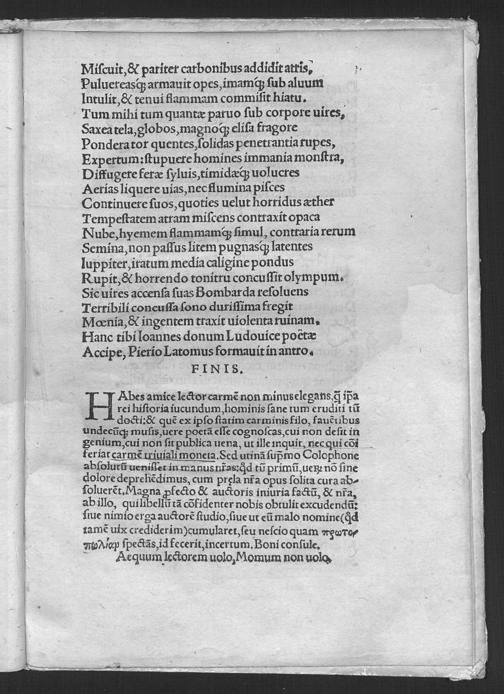 Miscuit, & pariter carbonibus addidit atris,
Puluereasq; armauit opes, imamq; sub aluum
Intulit, & tenui flammam commisit hiatu.
Tum mihi tum quantæ paruo sub corpore uires,
Saxea tela, globos, magnoq; elisa fragore
Pondera tor quentes, solidas penetrantia rupes,
Expertum: stupuere homines immania monstra,
Diffugere feræ syluis, timidæq; uolucres
Aerias liquere uias, nec flumina pisces
Continuere suos, quoties uelut horridus æther
Tempestatem atram miscens contraxit opaca
Nube, hyemem flammamq; simul, contraria rerum
Semina, non passus litem pugnasq; latentes
Iuppiter, iratum media caligine pondus
Rupit, & horrendo tonitru concussit olympum.
Sic uires accensa suas Bombarda resoluens
Terribili concussa sono durissima fregit
Mœnia, & ingentem traxit uiolenta ruinam.
Hanc tibi Ioannes donum Ludouice poëtæ
Accipe, Pierio Latomus formauit in antro.
FINIS.
HAbes amice lector carmē non minus elegans, q̄ ip̄a
rei historia iucundum, hominis sane tum eruditi tū
docti: & quē ex ipso statim carminis filo, fauētibus
undecūq; musis, uere poetā esse cognoscas, cui non desit in
genium, cui non sit publica uena, ut ille inquit, nec qui cōm̄
feriat carmē triuiali moneta. Sed utinā sup̄mo Colophone
absolutū uenisset in manus nr̄as: qd tū primū, uerū nō sine
dolore deprehēdimus, cum pręla nr̄a opus solita cura ab-
soluerēt. Magna ꝓfecto & auctoris iniuria factū, & nr̄a,
ab illo, qui libellū tā cōfidenter nobis obtulit excudendū:
siue nimio erga auctorē studio, siue ut eū malo nomine (qd
tamē uix crediderim) cumularet, seu nescio quam πρωτο-
πωλίαν spectās, id fecerit, incertum. Boni consule.
Aequum lectorem uolo, Momum non uolo.